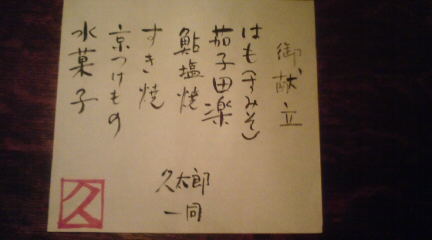 御献立
はも(すみそ)
茄子田楽
鮎塩焼
すき焼
京つけもの
水菓子
久太郎
一同
久